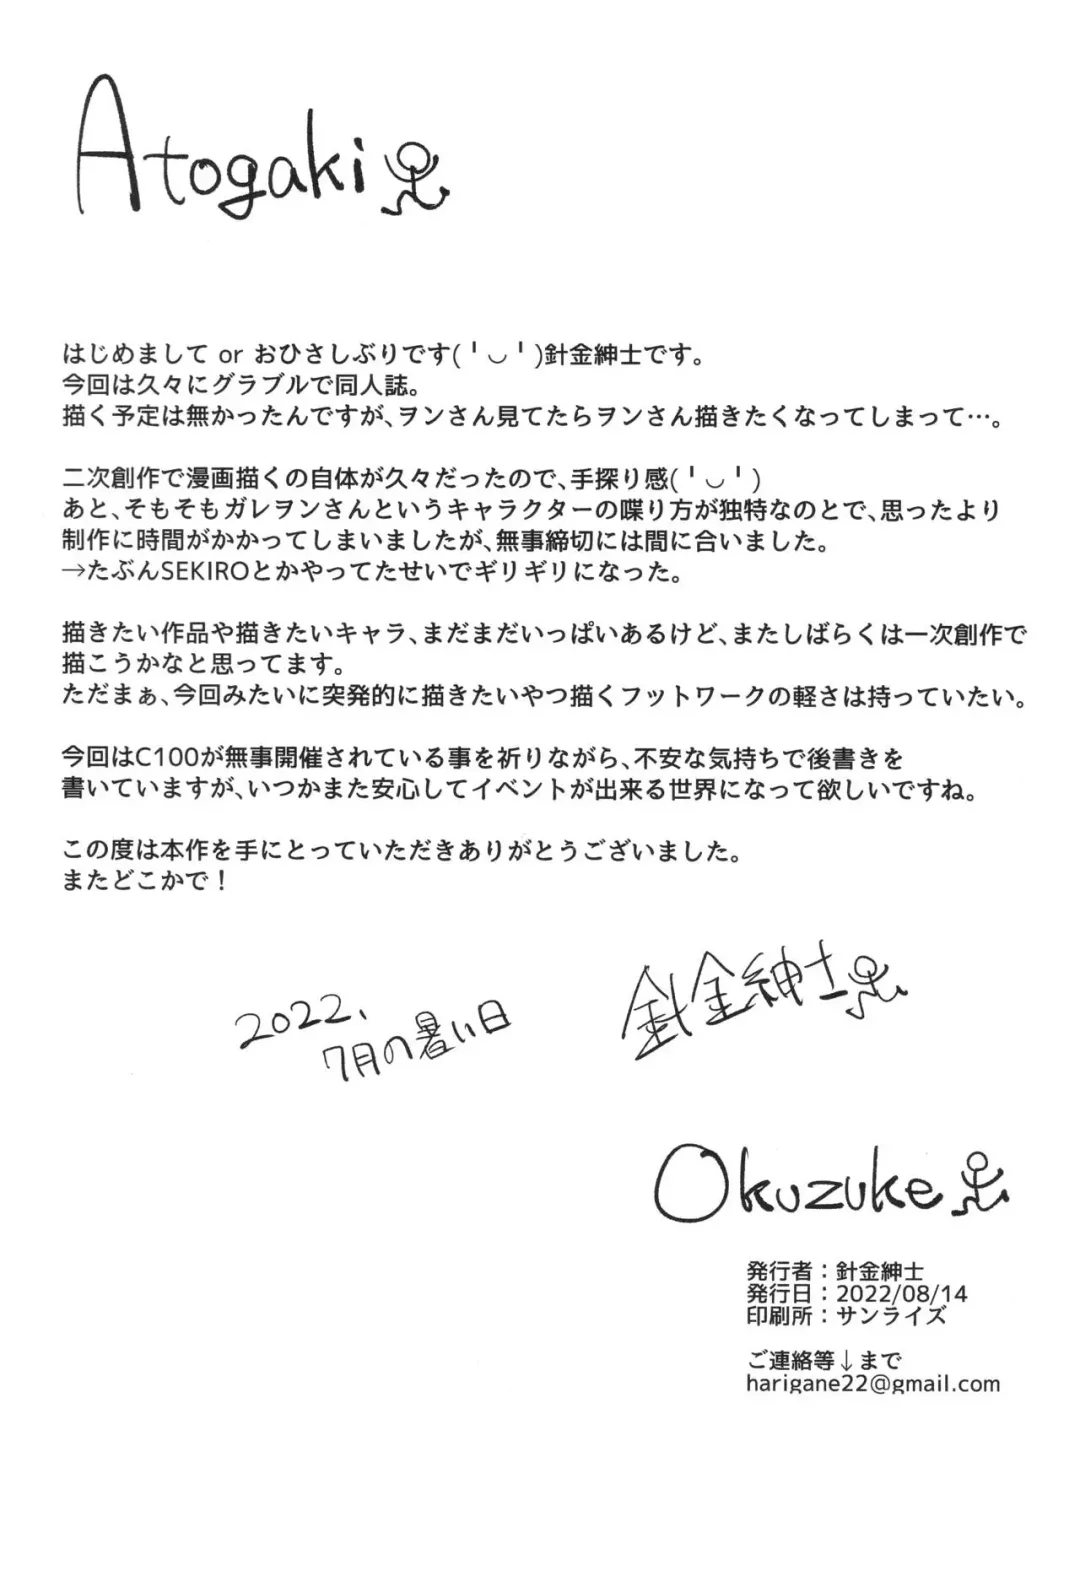 Atogaki
はじめまして or おひさしぶりです(╹◡╹)針金紳士です。
今回は久々にグラブルで同人誌。
描く予定は無かったんですが、ヲンさん見てたらヲンさん描きたくなってしまって…。
二次創作で漫画描くの自体が久々だったので、手探り感(╹◡╹)
あと、そもそもガレヲンさんというキャラクターの喋り方が独特なのとで、思ったより
制作に時間がかかってしまいましたが、無事締切には間に合いました。
→たぶんSEKIROとかやってたせいでギリギリになった。
描きたい作品や描きたいキャラ、まだまだいっぱいあるけど、またしばらくは一次創作で
描こうかなと思ってます。
ただまぁ、今回みたいに突発的に描きたいやつ描くフットワークの軽さは持っていたい。
今回はC100が無事開催されている事を祈りながら、不安な気持ちで後書きを
書いていますが、いつかまた安心してイベントが出来る世界になって欲しいですね。
この度は本作を手にとっていただきありがとうございました。
またどこかで！
2022、
7月の暑い日
針金紳士
Okuzuke
発行者：針金紳士
発行日：2022/08/14
印刷所：サンライズ
ご連絡等↓まで
harigane22@gmail.com